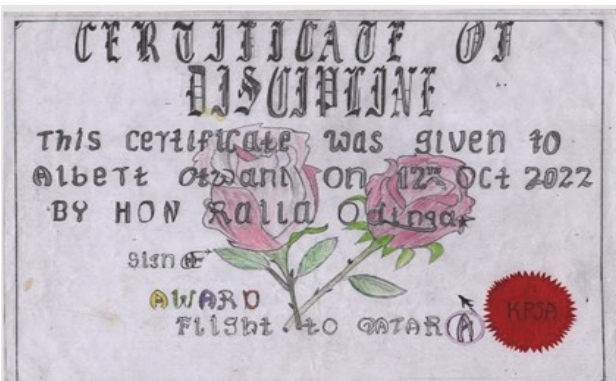 CERTIFICATE OF
DISCIPLINE
This certificate was given to
Albert Otwani on 12th Oct 2022
BY HON Raila Odinga
Sign
AWARD
Flight to QATAR A
KPSA